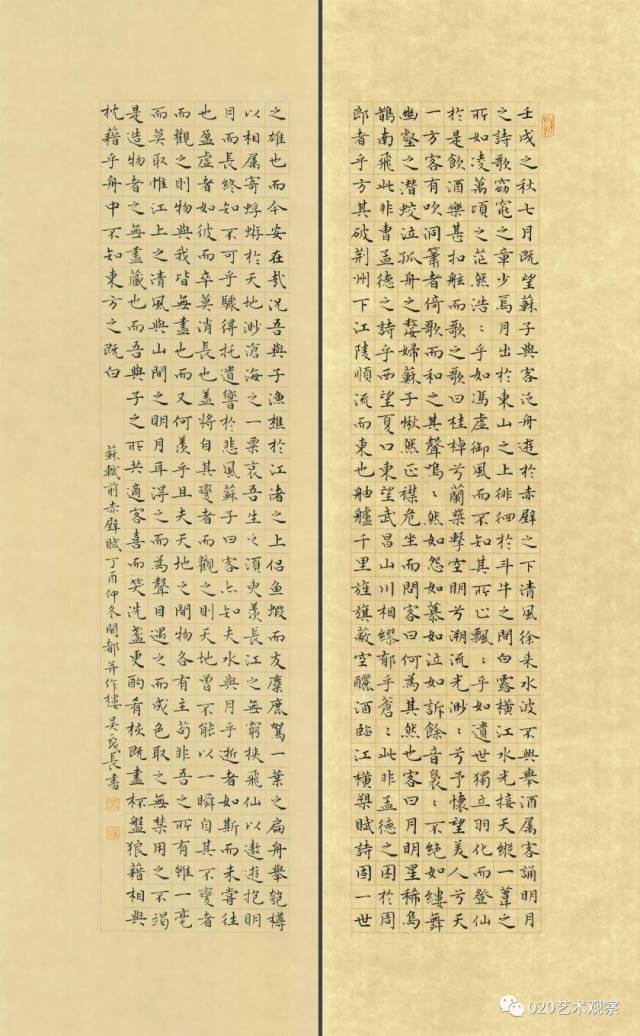 壬戌之秋七月既望蘇子與客泛舟遊於赤壁之下清風徐来水波不興舉酒属客誦明月
之詩歌窈窕之章少焉月出於東山之上徘徊於斗牛之間白露横江水光接天縱一葦之
所如凌萬頃之茫然浩〻乎如馮虚御風而不知其所止飄〻乎如遺世獨立羽化而登仙
於是飲酒樂甚扣舷而歌之歌曰桂棹兮蘭槳擊空明兮溯流光渺〻兮予懷望美人兮天
一方客有吹洞簫者倚歌而和之其聲嗚〻然如怨如慕如泣如訴餘音裊〻不絶如縷舞
幽壑之潜蛟泣孤舟之嫠婦蘇子愀然正襟危坐而問客曰何為其然也客曰月明星稀烏
鵲南飛此非曹孟德之詩乎西望夏口東望武昌山川相繆郁乎蒼〻此非孟德之困於周
郎者乎方其破荆州下江陵順流而東也舳艫千里旌旗蔽空釃酒臨江横槊賦詩固一世
之雄也而今安在哉况吾與子漁樵於江渚之上侣鱼蝦而友麋鹿駕一葉之扁舟舉匏樽
以相属寄蜉蝣於天地渺滄海之一粟哀吾生之須臾羨長江之無窮挟飛仙以遨遊抱明
月而長終知不可乎驟得托遺響於悲風蘇子曰客亦知夫水與月乎逝者如斯而未嘗往
也盈虚者如彼而卒莫消長也盖將自其變者而觀之則天地曾不能以一瞬自其不變者
而觀之則物與我皆無盡也而又何羨乎且夫天地之間物各有主苟非吾之所有雖一毫
而莫取惟江上之清風與山間之明月耳得之而為聲目遇之而成色取之無禁用之不竭
是造物者之無盡藏也而吾與子之所共適客喜而笑洗盞更酌肴核既盡杯盤狼藉相與
枕藉乎舟中不知東方之既白
蘇軾前赤壁賦丁酉仲冬長書
020艺术观察